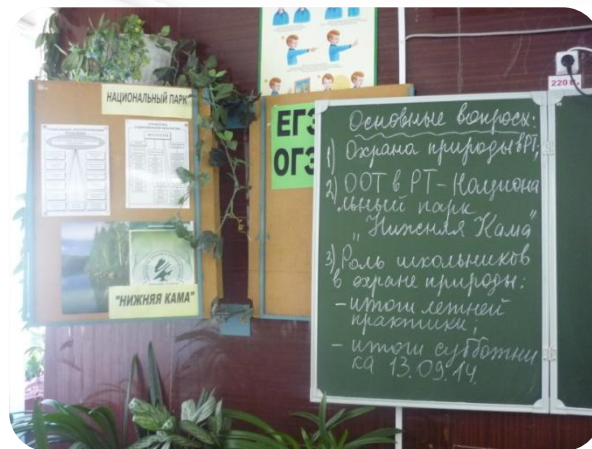 НАЦИОНАЛЬНЫЙ ПАРК
"НИЖНЯЯ КАМА"
ЕГЭ
ОГЭ
220 в.
Основные вопросы:
1) Охрана природы в РТ;
2) ООТ в РТ - Национа
льный парк
„Нижняя Кама"
3) Роль школьников
в охране природы:
- итоги летней
практики;
- итоги субботни
ка 13.09.14.